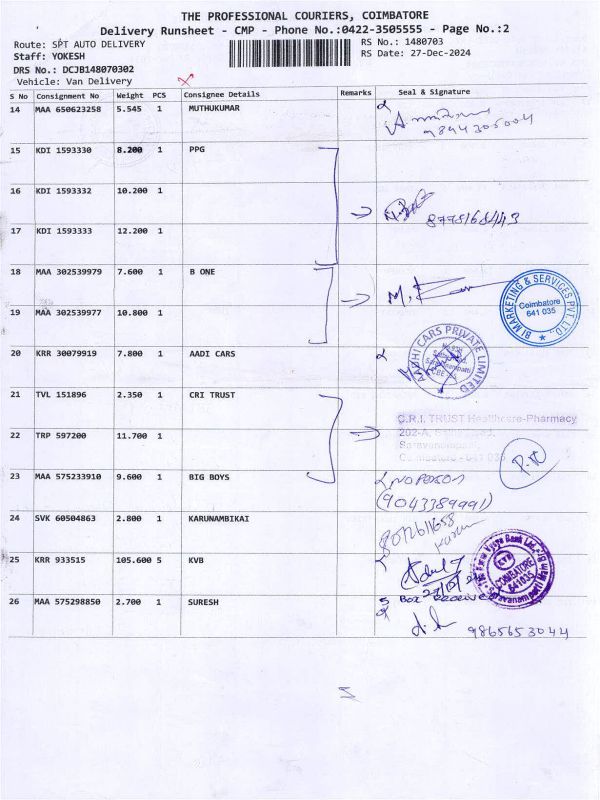 THE PROFESSIONAL COURIERS, COIMBATORE
Delivery Runsheet - CMP - Phone No.:0422-3505555 - Page No.:2
Route: SPT AUTO DELIVERY
RS No.: 1480703
Staff: YOKESH
RS Date: 27-Dec-2024
DRS No.: DCJB148070302
Vehicle: Van Delivery
S No Consignment No Weight PCS Consignee Details Remarks Seal & Signature
14 MAA 650623258 5.545 1 MUTHUKUMAR
9894305004
15 KDI 1593330 8.200 1 PPG
16 KDI 1593332 10.200 1
8778168443
17 KDI 1593333 12.200 1
18 MAA 302539979 7.600 1 B ONE
BI MARKETING & SERVICES PVT LTD.
Coimbatore
641 035
19 MAA 302539977 10.800 1
20 KRR 30079919 7.800 1 AADI CARS
AADHI CARS PRIVATE LIMITED
21 TVL 151896 2.350 1 CRI TRUST
C.R.I. TRUST Healthcare-Pharmacy
202-A,
Saravanampatti
Coimbatore - 641 035
22 TRP 597200 11.700 1
P.K
23 MAA 575233910 9.600 1 BIG BOYS
NO PERSON
(9043389991)
24 SVK 60504863 2.800 1 KARUNAMBIKAI
8012611658
25 KRR 933515 105.600 5 KVB
COIMBATORE
641035
5 Box Received
26 MAA 575298850 2.700 1 SURESH
9865653044